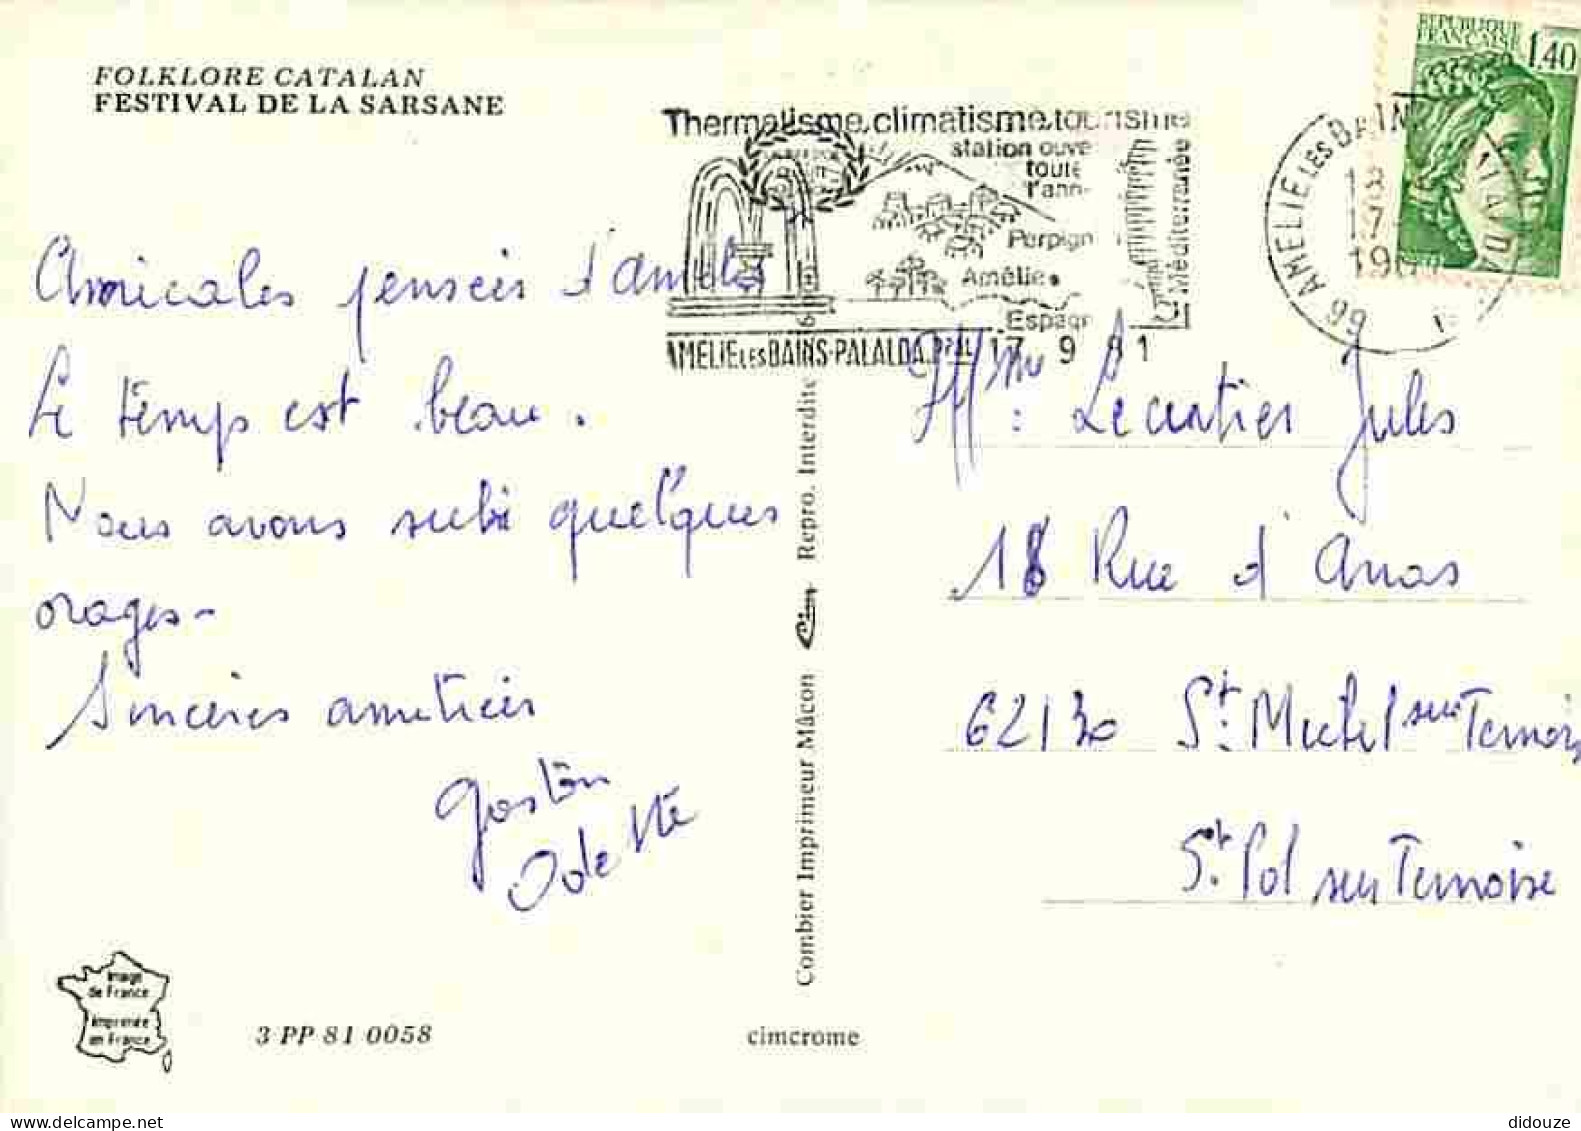 FOLKLORE CATALAN
FESTIVAL DE LA SARSANE
Thermalisme.climatisme.tourisme
station ouve
toute
l'ann
Perpign
Amélie
Espagn
Méditerranée
AMELIE LES BAINS-PALALDA
17 9 81
66 AMELIE LES BAINS
17
REPUBLIQUE
FRANÇAISE
1,40
Amicales pensées d'Amélie
Le temps est beau.
Nous avons subi quelques
orages-
Sincères amitiés
Gaston
Odette
Mme: Lecurtier Jules
18 Rue d'Arras
62130 St. Michel sur Ternoise
St. Pol sur Ternoise
Combier Imprimeur Mâcon Cim Repro. Interdite
Image
de France
Imprimée
en France
3 PP 81 0058
cimcrome
didouze